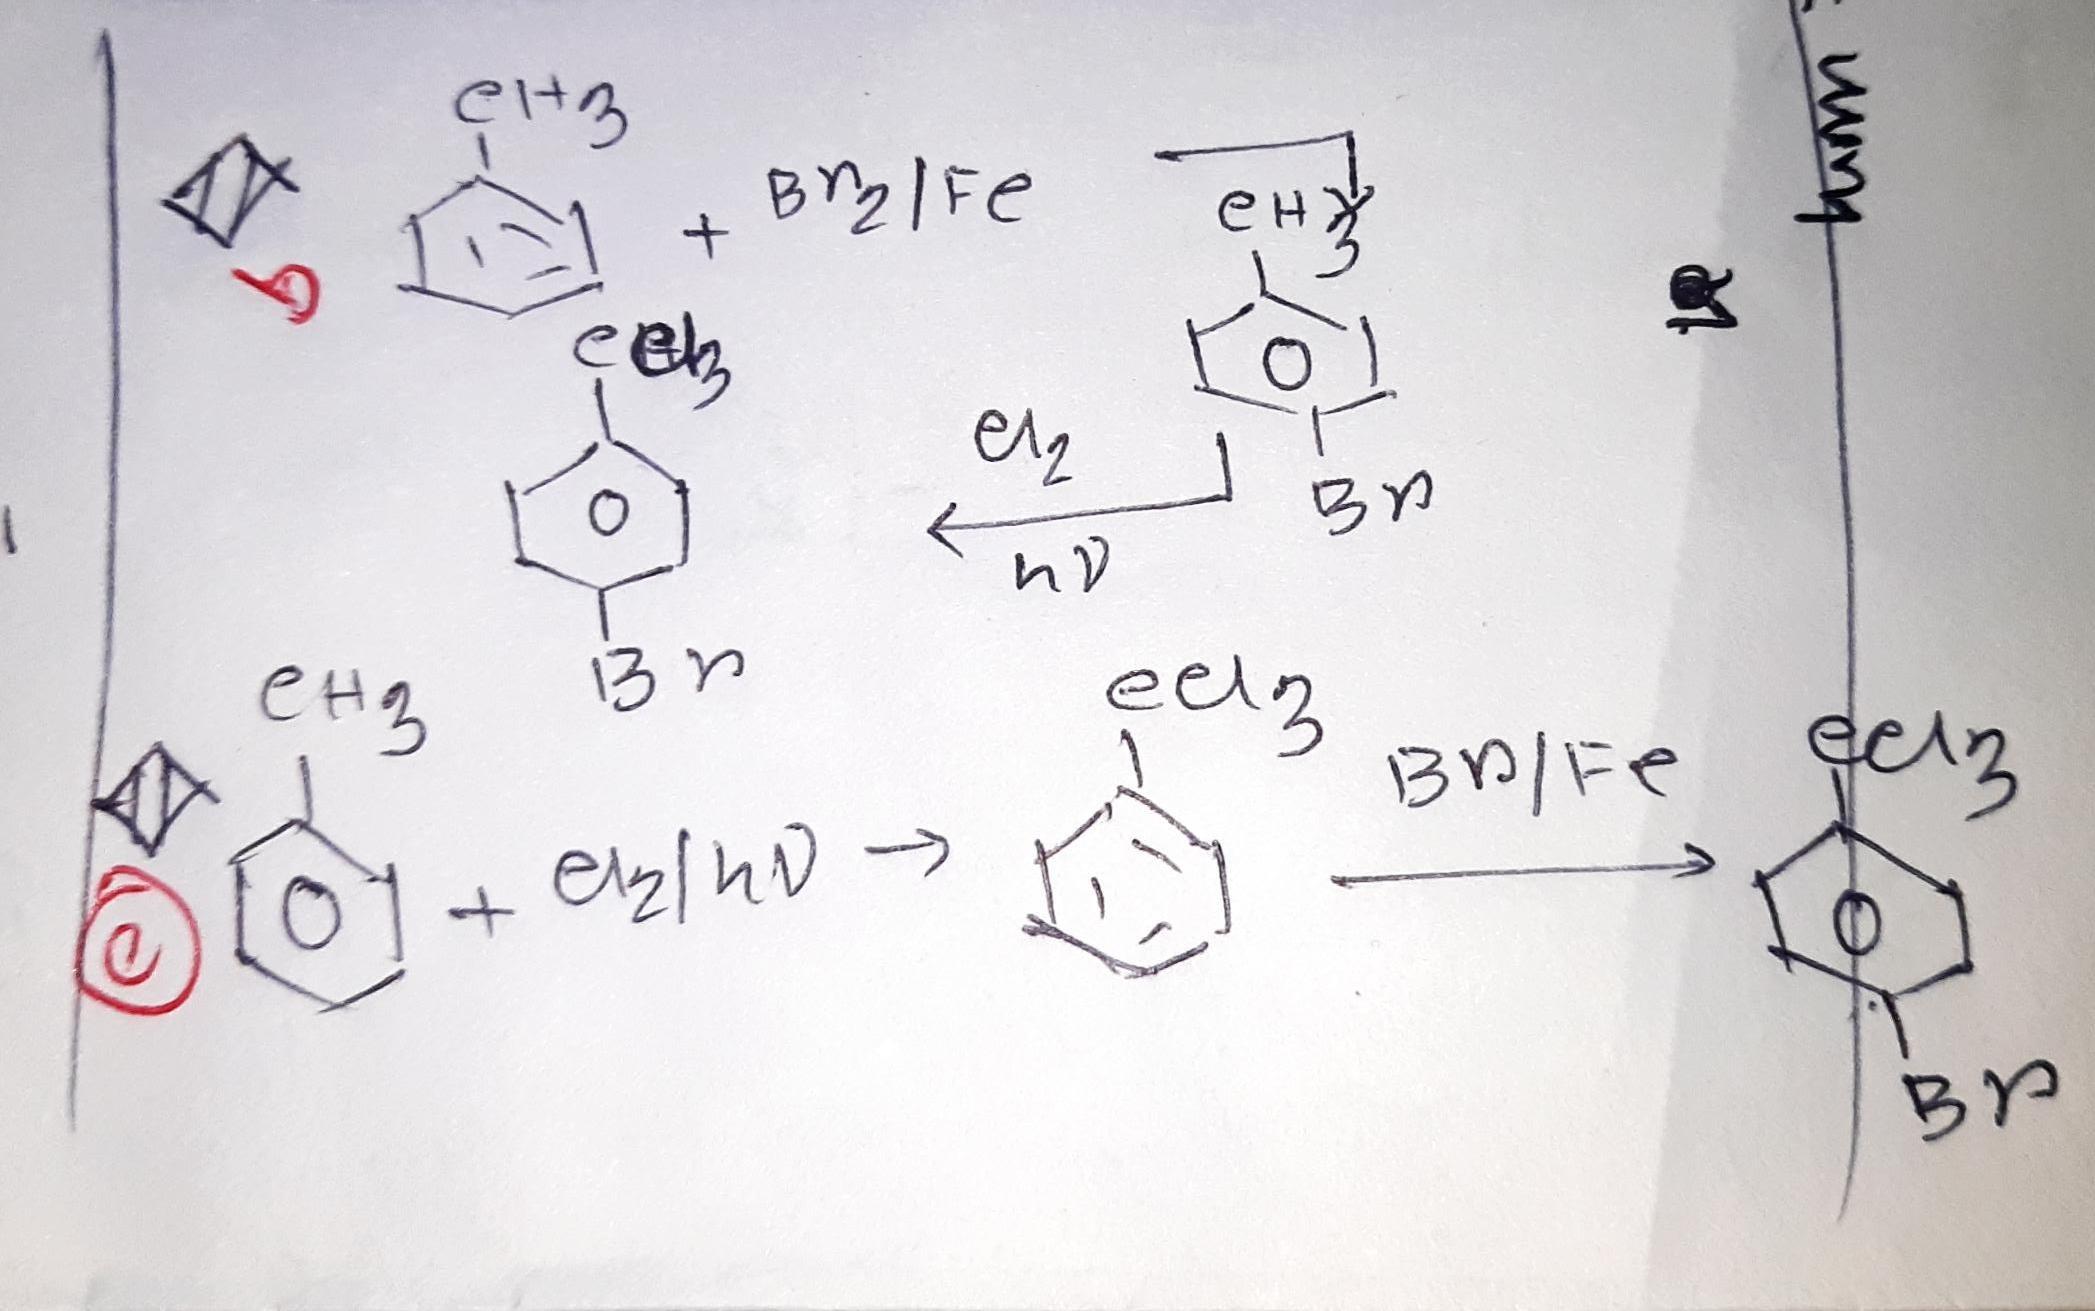 CH3
b
+ Br2/Fe
CH3
Br
Cl2
hν
CCl3
Br
CH3
c
+ Cl2/hν →
CCl3
Br/Fe
CCl3
Br